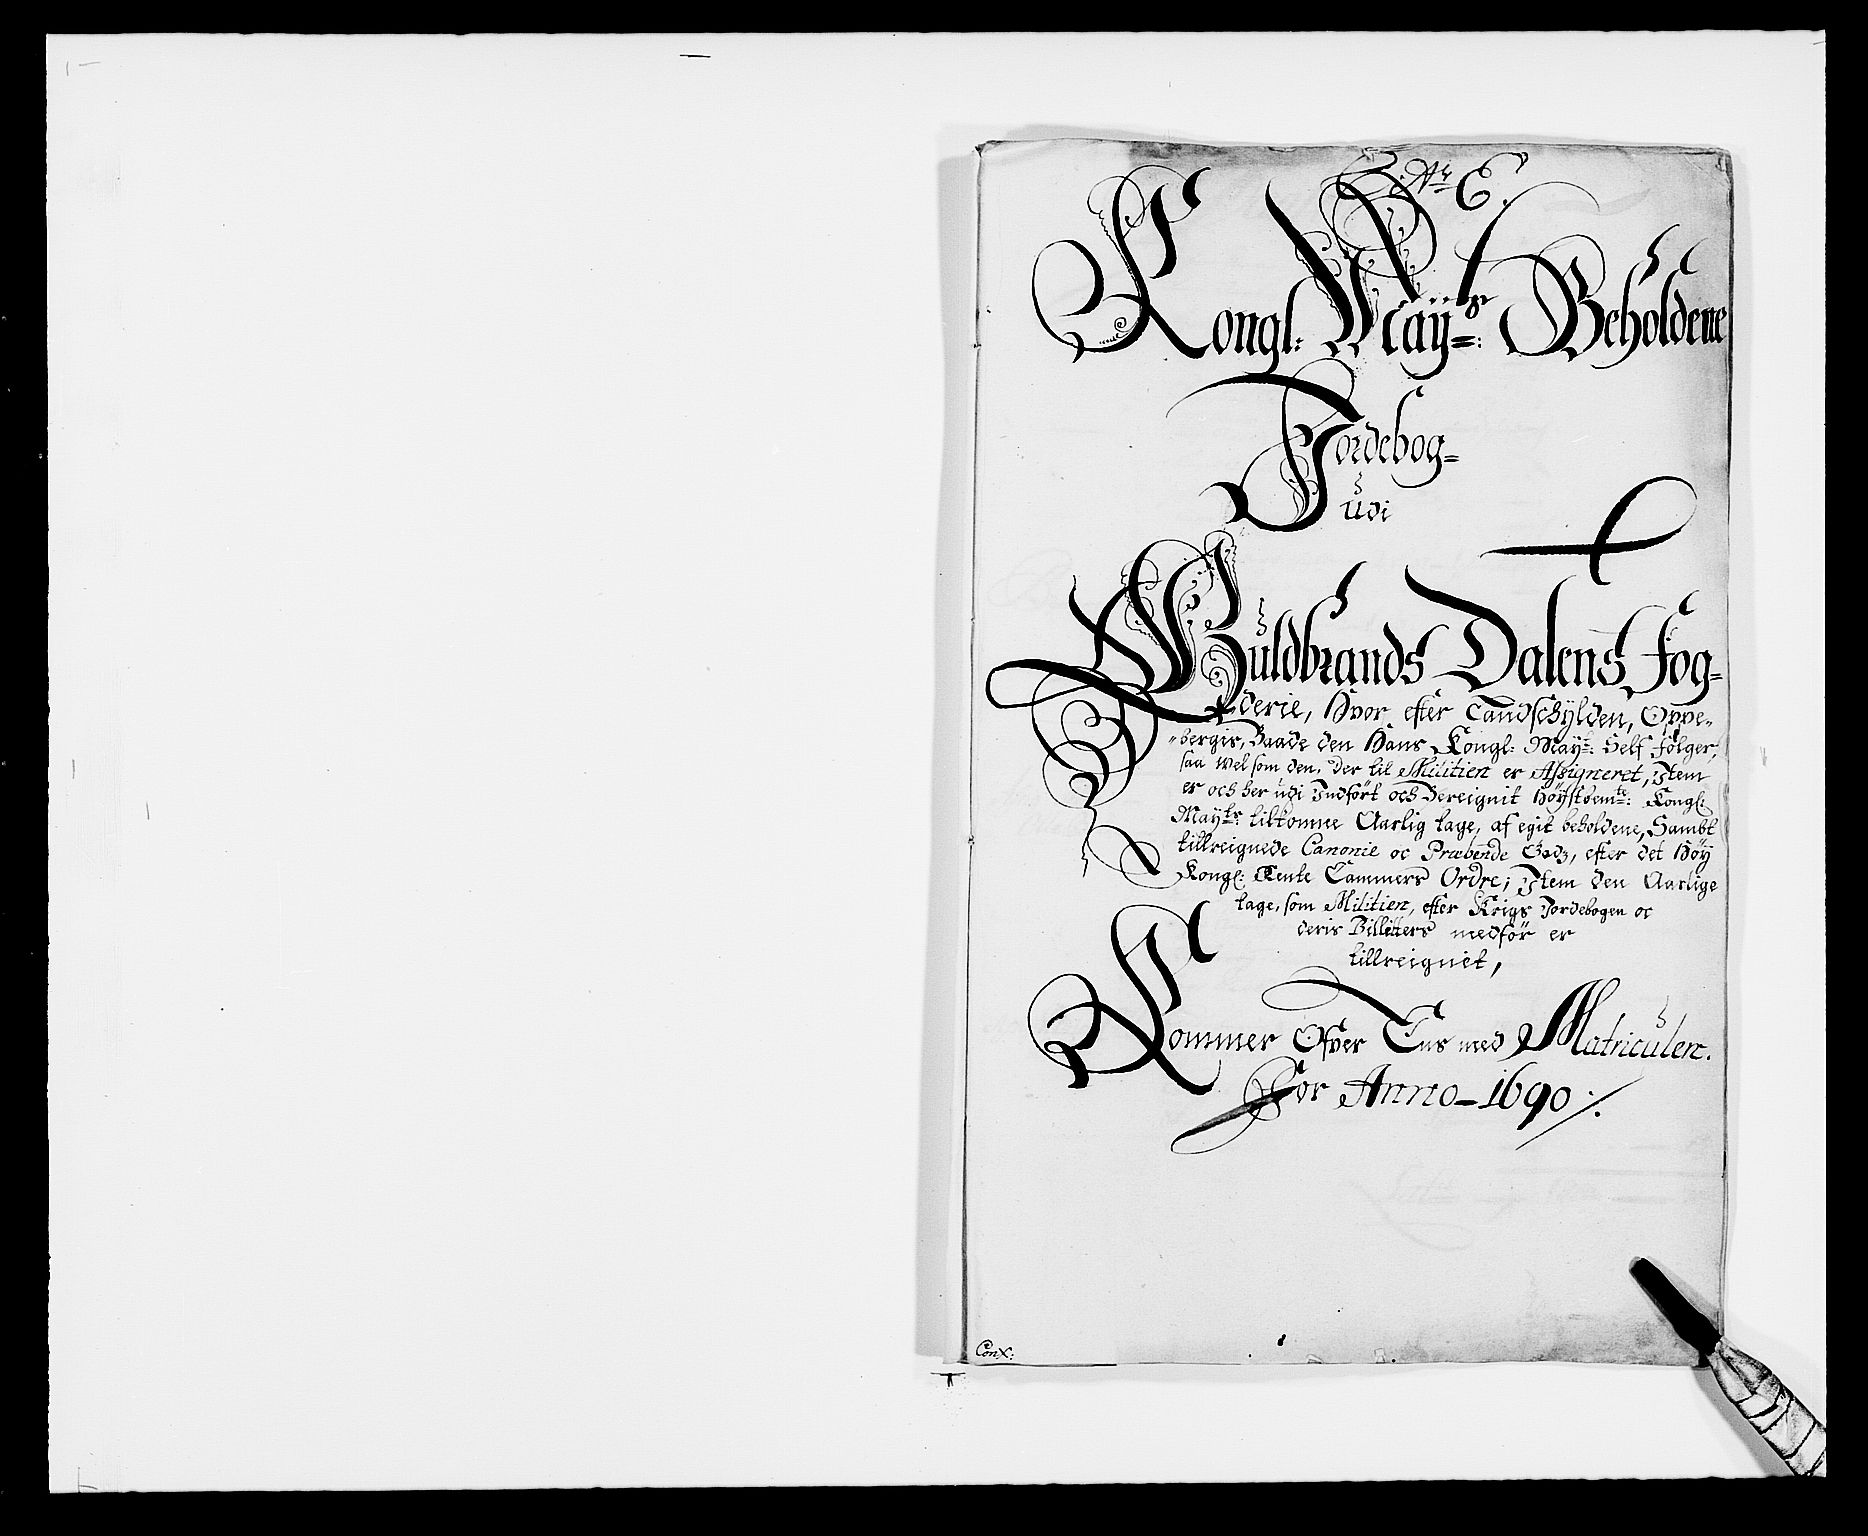 E.
Kongl: Maÿts: Beholdene
Jordebog=
udi
Guldbrands Dalens Fog=
derie, Hvor efter Landschÿlden, Oppe=
=bergis, Baade den Hans Kongl: Maÿt: Self følger,
saa vel som den, der til Militien er Assigneret, Item
er och her udi Indført och bereignit Høÿstbemte: Kongl:
Maÿts: tilkomne Aarlig tage, af egit beholdene, Sambt
tillreignede Canonie oc Præbende Godz, efter det Høÿ
Kongl: Rente Cammers Ordre; Item den Aarlige
tage, som Militien, efter Krigs Jordebogen oc
deris Billetters medfør er
tillreignet,
Kommer Ofver Ens med Matriculen.
For Anno = 1690 ./.
ConX: